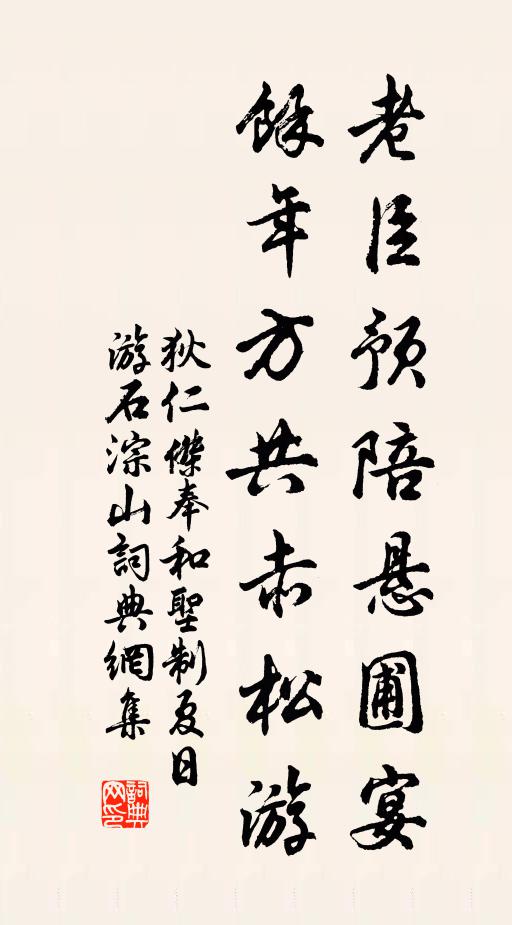 老臣預陪悬圃宴
餘年方共赤松游
狄仁傑奉和聖制夏日
游石淙山詞典網集
詞典网印